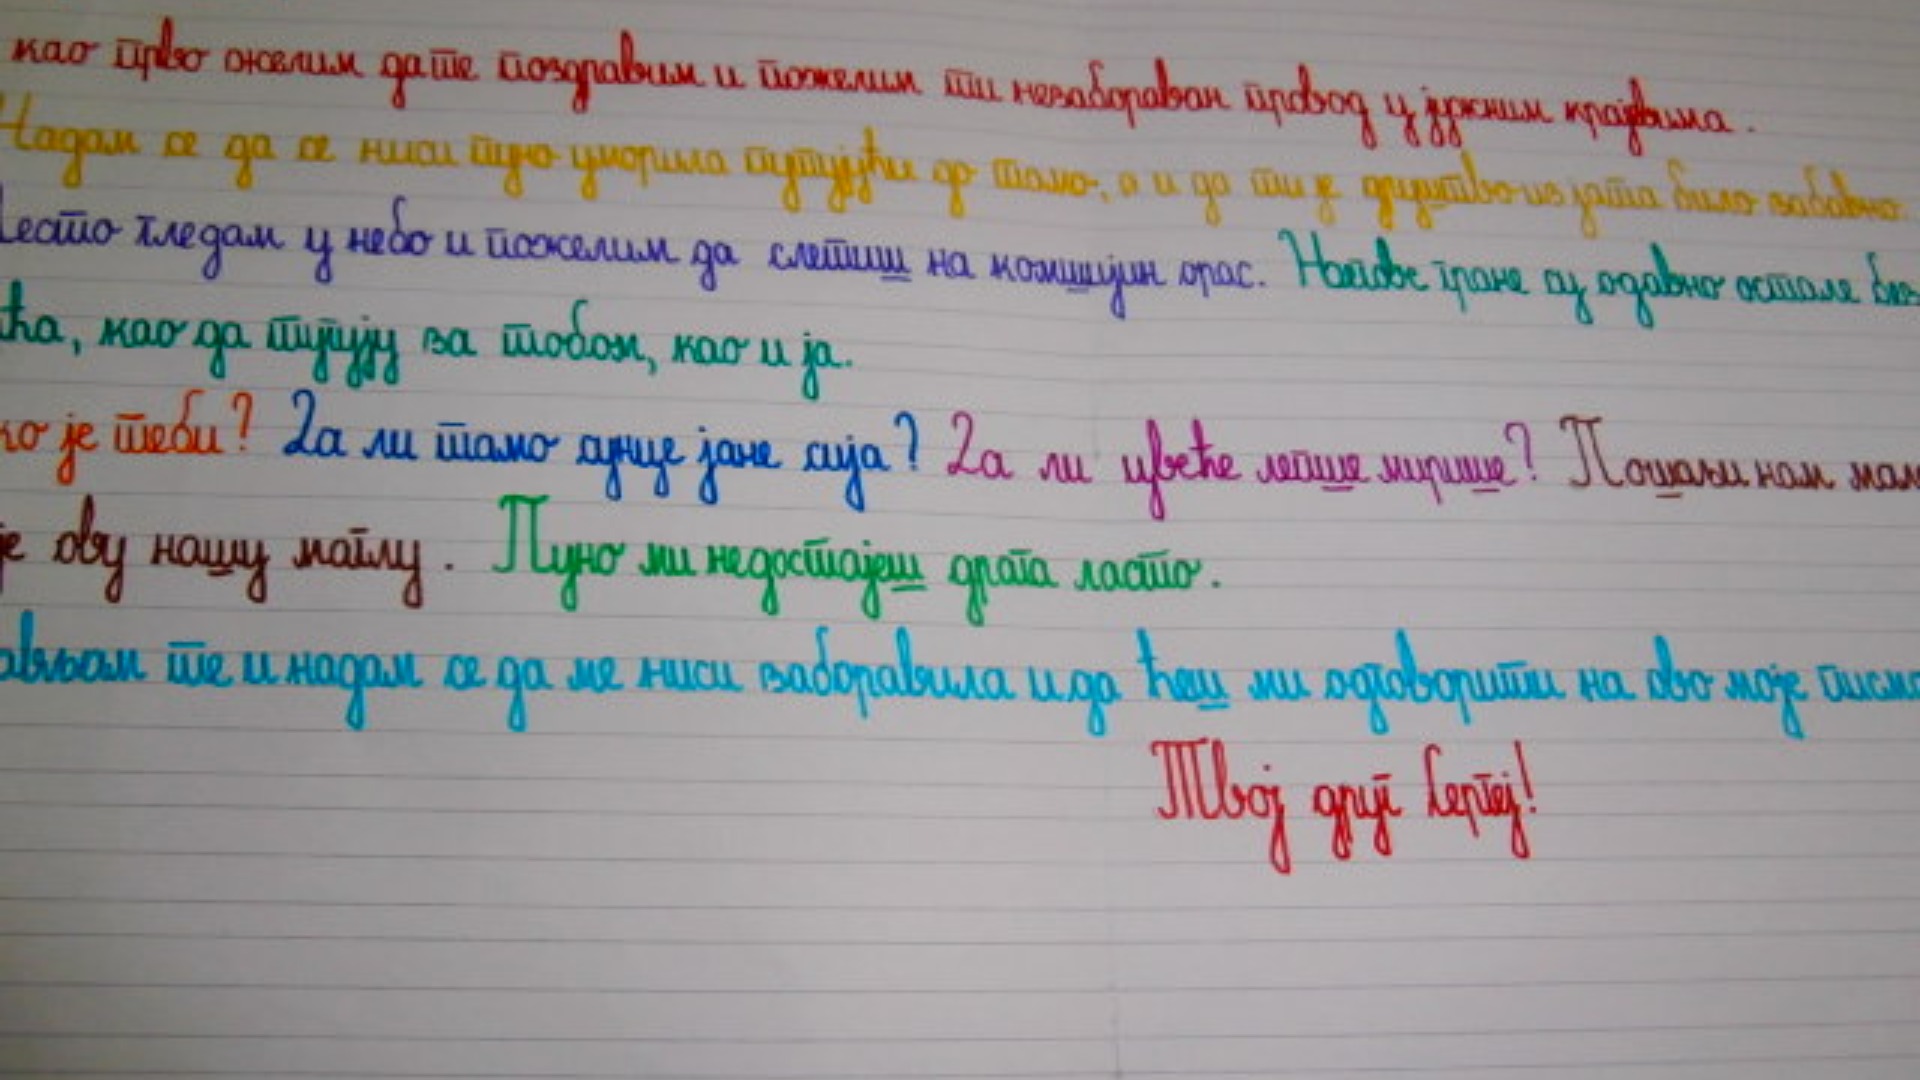 као прво желим да те поздравим и пожелим ти незабораван провод у јужним крајевима.
Надам се да се ниси пуно уморила путујући до тамо, а и да ти је друштво из јата било забавно.
Често гледам у небо и пожелим да слетиш на комшијин орас. Његове гране су одавно остале без
ћа, као да тугују за тобом, као и ја.
ко је теби? Да ли тамо сунце јаче сија? Да ли цвеће лепше мирише? Пошаљи нам мало
је ову нашу маглу. Пуно ми недостајеш драга ласто.
ављам те и надам се да ме ниси заборавила и да ћеш ми одговорити на ово моје писмо
Твој друг Сергеј!